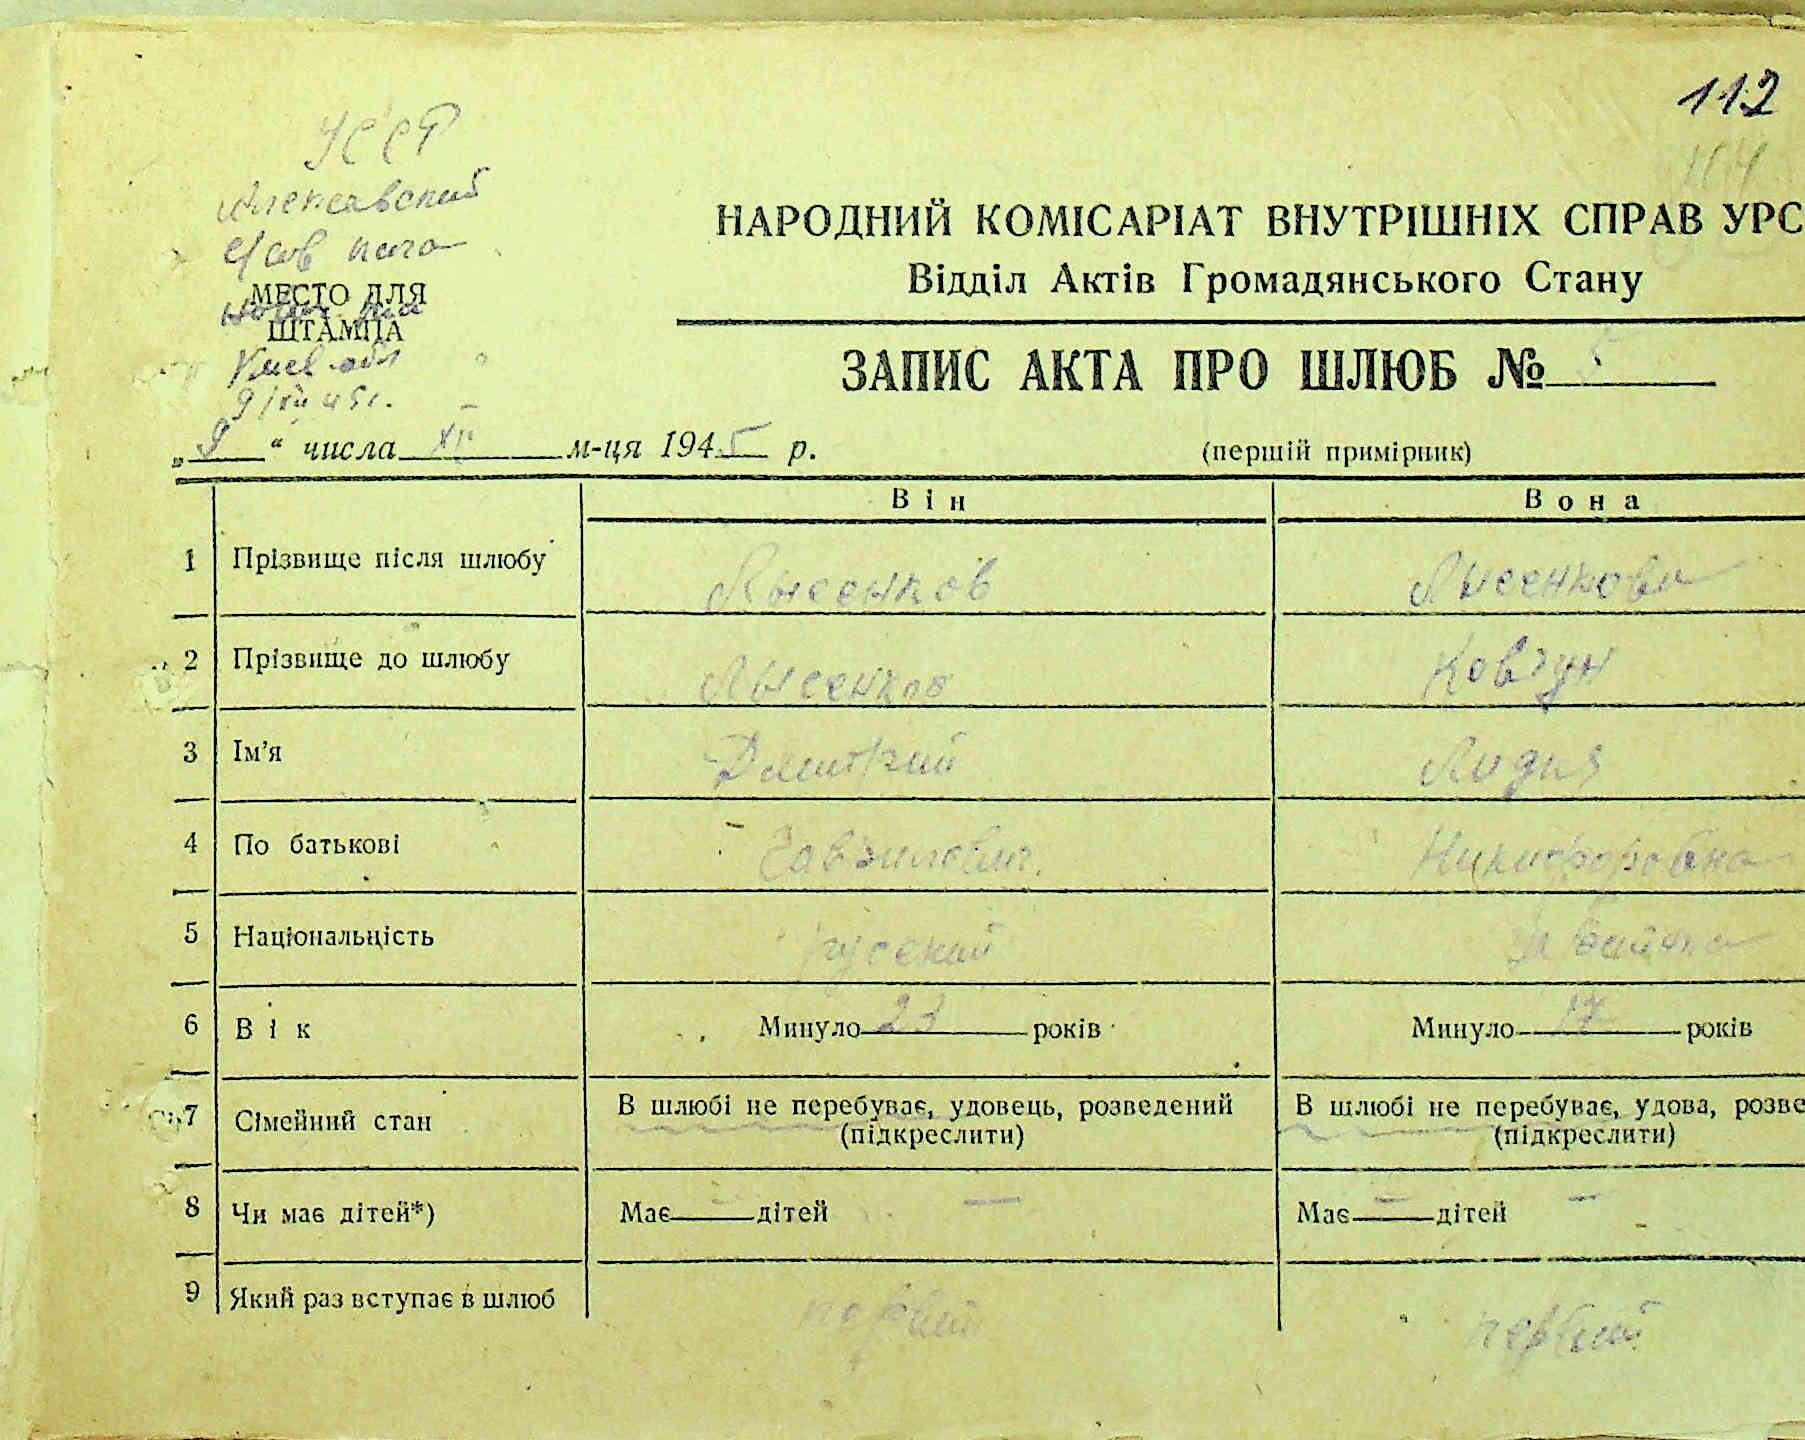 112
УССР
С/сов
НАРОДНИЙ КОМІСАРІАТ ВНУТРІШНІХ СПРАВ УРС
Відділ Актів Громадянського Стану
МЕСТО ДЛЯ
ШТАМПА
Киев. обл
9/XII 45 г.
ЗАПИС АКТА ПРО ШЛЮБ № 5
„9“ числа XII м-ця 1945 р.
(перший примірник)
Він Вона
1 Прізвище після шлюбу Лысенков Лысенкова
2 Прізвище до шлюбу Лысенков Ковтун
3 Ім’я Дмитрий Лидия
4 По батькові Гаврилович. Никифоровна
5 Національність русский
6 Вік Минуло 23 років Минуло 17 років
7 Сімейний стан В шлюбі не перебуває, удовець, розведений В шлюбі не перебуває, удова, розве
(підкреслити) (підкреслити)
8 Чи має дітей*) Має — дітей — Має — дітей —
9 Який раз вступає в шлюб первый первый